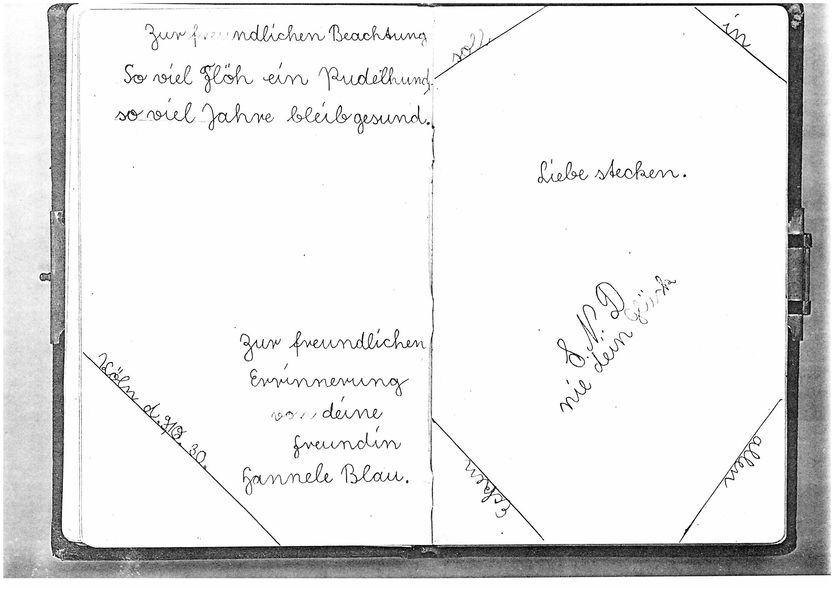 Zur freundlichen Beachtung
So viel Flöh ein Pudelhund
so viel Jahre bleib gesund.
Köln d. 30.
Zur freundlichen
Errinnerung
von deine
Freundin
Hannele Blau.
soll
in
allen
Ecken
Liebe stecken.
S. N. D
nie dein Glück